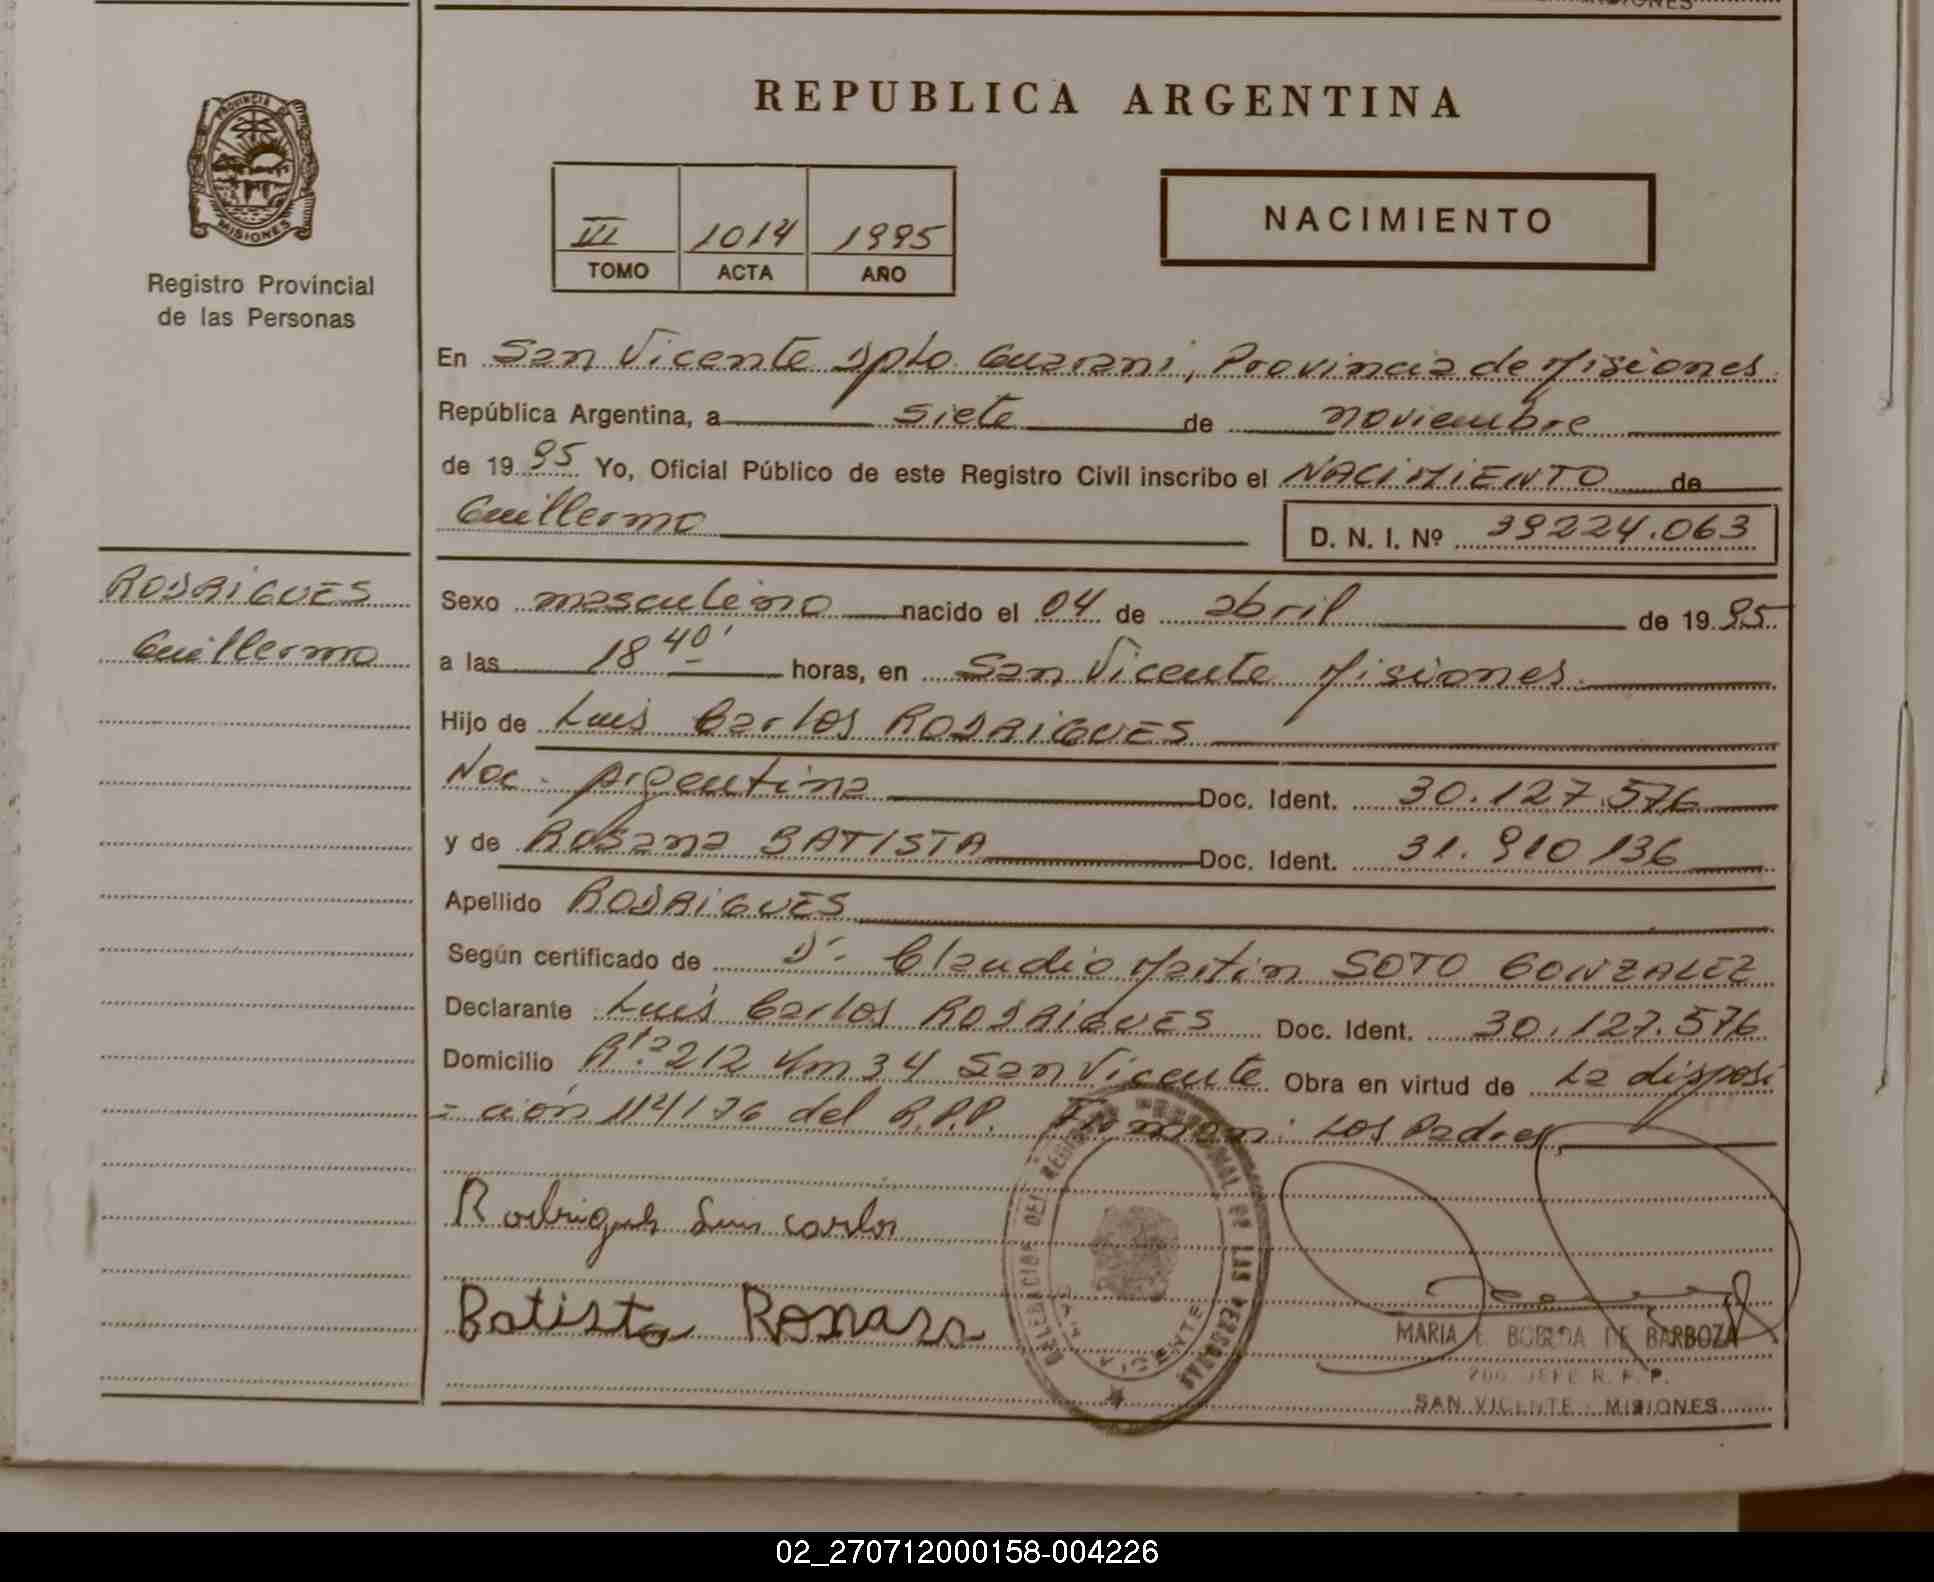 REPUBLICA ARGENTINA
PROVINCIA DE
MISIONES
Registro Provincial
de las Personas
III 1014 1995
TOMO ACTA AÑO
NACIMIENTO
En San Vicente Dpto. Guarani, Provincia de Misiones
República Argentina, a siete de noviembre
de 19 95 Yo, Oficial Público de este Registro Civil inscribo el NACIMIENTO de
Guillermo
D. N. I. Nº 39224.063
RODRIGUES
Guillermo
Sexo masculino nacido el 04 de abril de 19 95
a las 18 40' horas, en San Vicente Misiones
Hijo de Luis Carlos RODRIGUES
Nac. Argentina Doc. Ident. 30.127.576
y de Rosana BATISTA Doc. Ident. 31.910 136
Apellido RODRIGUES
Según certificado de Dr. Claudio Martin SOTO GONZALEZ
Declarante Luis Carlos RODRIGUES Doc. Ident. 30.127.576
Domicilio Rta. 212 Km 34 San Vicente Obra en virtud de La disposi
= ción 114/76 del R.P.P. Firman: Los Padres
Rodrigues Luis carlos
Batista
DELEGACION DEL REGISTRO PROVINCIAL DE LAS PERSONAS
SAN VICENTE
MARIA E. DE BARBOZA
JEFE R. P. P.
SAN VICENTE - MISIONES
02_270712000158-004226